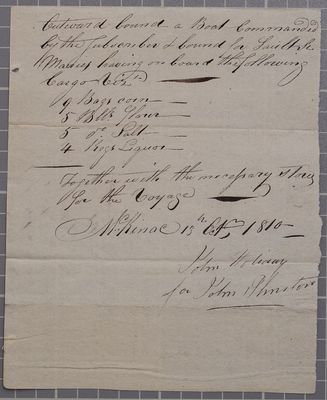 Outward bound a Boat Commanded
by the Subscriber & bound for Sault Ste
Maries having on board the following
Cargo Viz
9 Bags corn
5 Bbls flour
5 do Salt
4 Kegs Liquor
Together with the necessary stores
for the Voyage
McKinac 15th Octr 1810
John
for John Johnston